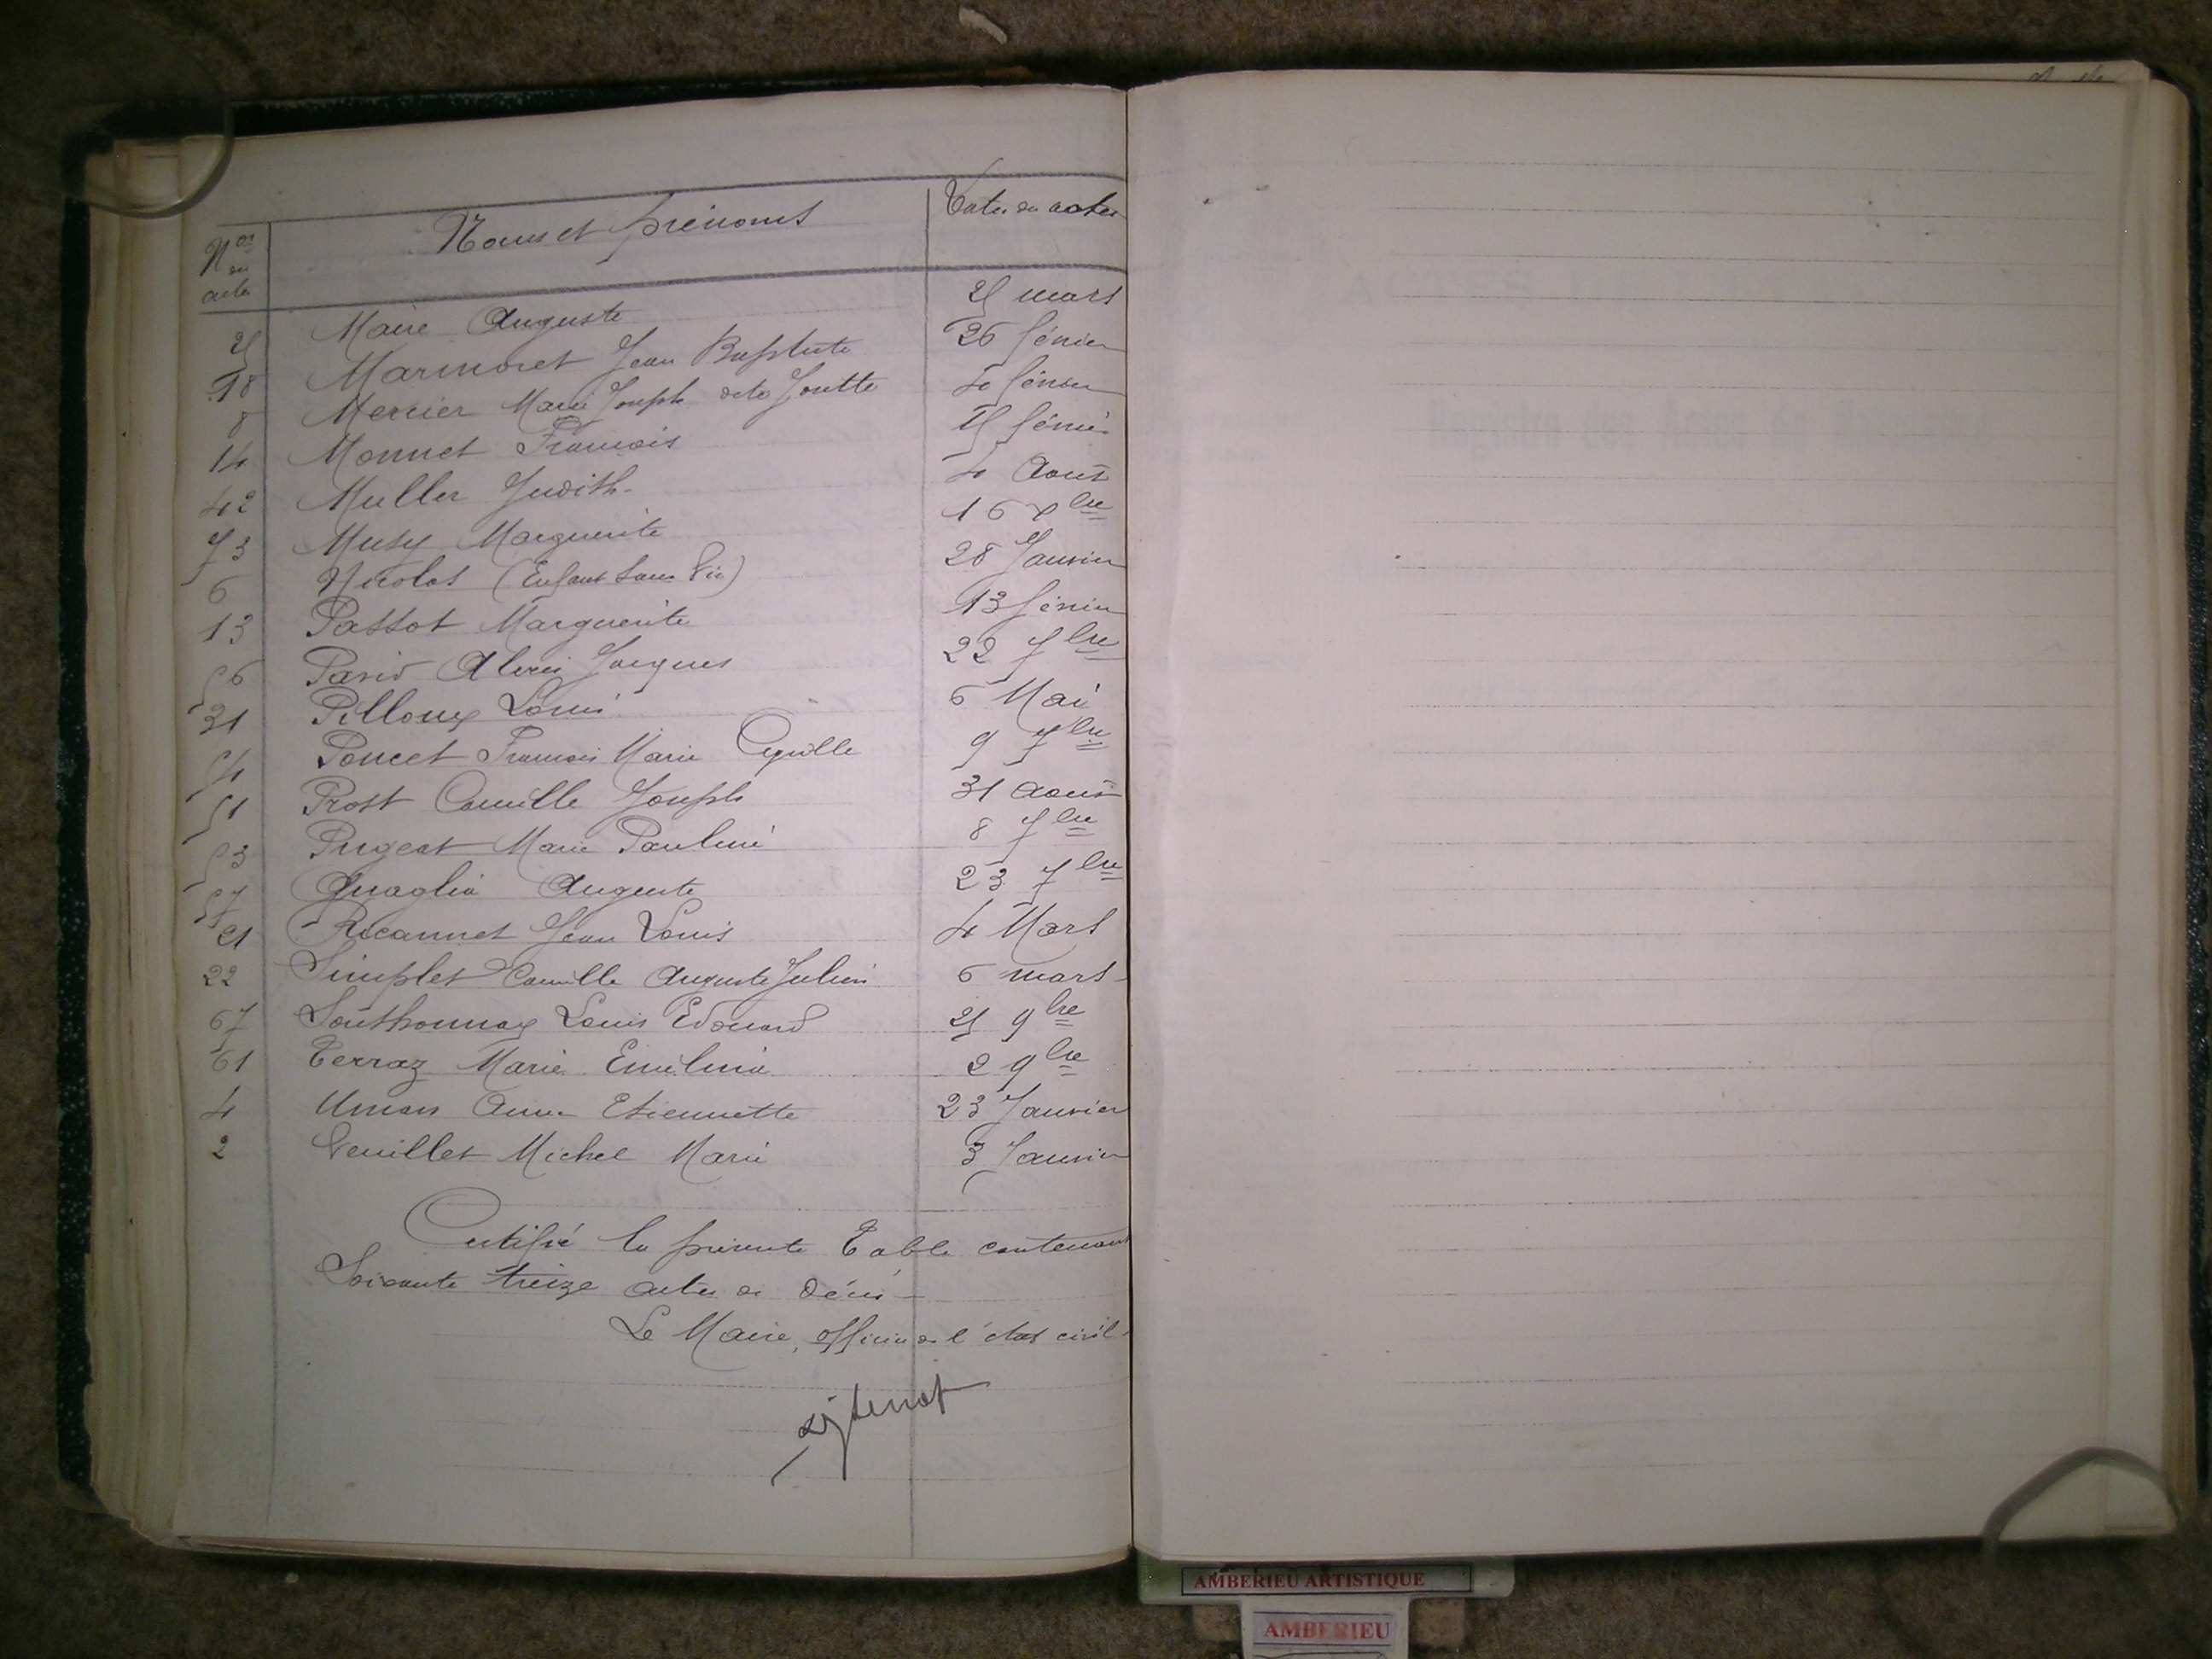 Nos des actes Noms et prénoms Dates des actes
25 Maire Auguste 25 mars
18 Marmoret Jean Baptiste 26 février
8 Mercier Marie Joseph dite Goutte 4 février
14 Monnet François 15 février
42 Muller Judith 4 Août
73 Musy Marguerite 16 xbre
6 Nicolas (Enfant sans Vie) 28 Janvier
13 Passot Marguerite 13 février
56 Alexis Jacques 22 7bre
31 Pilloux Louis 6 Mai
54 Poncet François Marie Cyrille 9 7bre
51 Prost Camille Joseph 31 août
53 Pugeat Marie Pauline 8 7bre
57 Quaglia Auguste 23 7bre
21 Jean Louis 4 Mars
22 Simplet Camille Auguste Julien 6 mars
67 Southonnax Louis Edouard 25 9bre
61 Terraz Marie Emilina 2 9bre
4 Anne Etiennette 23 Janvier
2 Veuillet Michel Marie 3 Janvier
Certifié la présente Table contenant
Soixante treize actes de décès
Le Maire, officier de l'état civil
AMBERIEU ARTISTIQUE
AMBERIEU